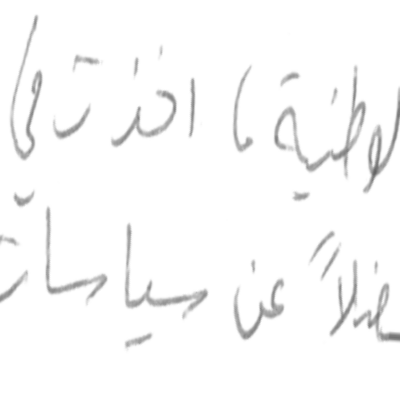 وطنية ما اخذت في
فضلاً عن سياسات